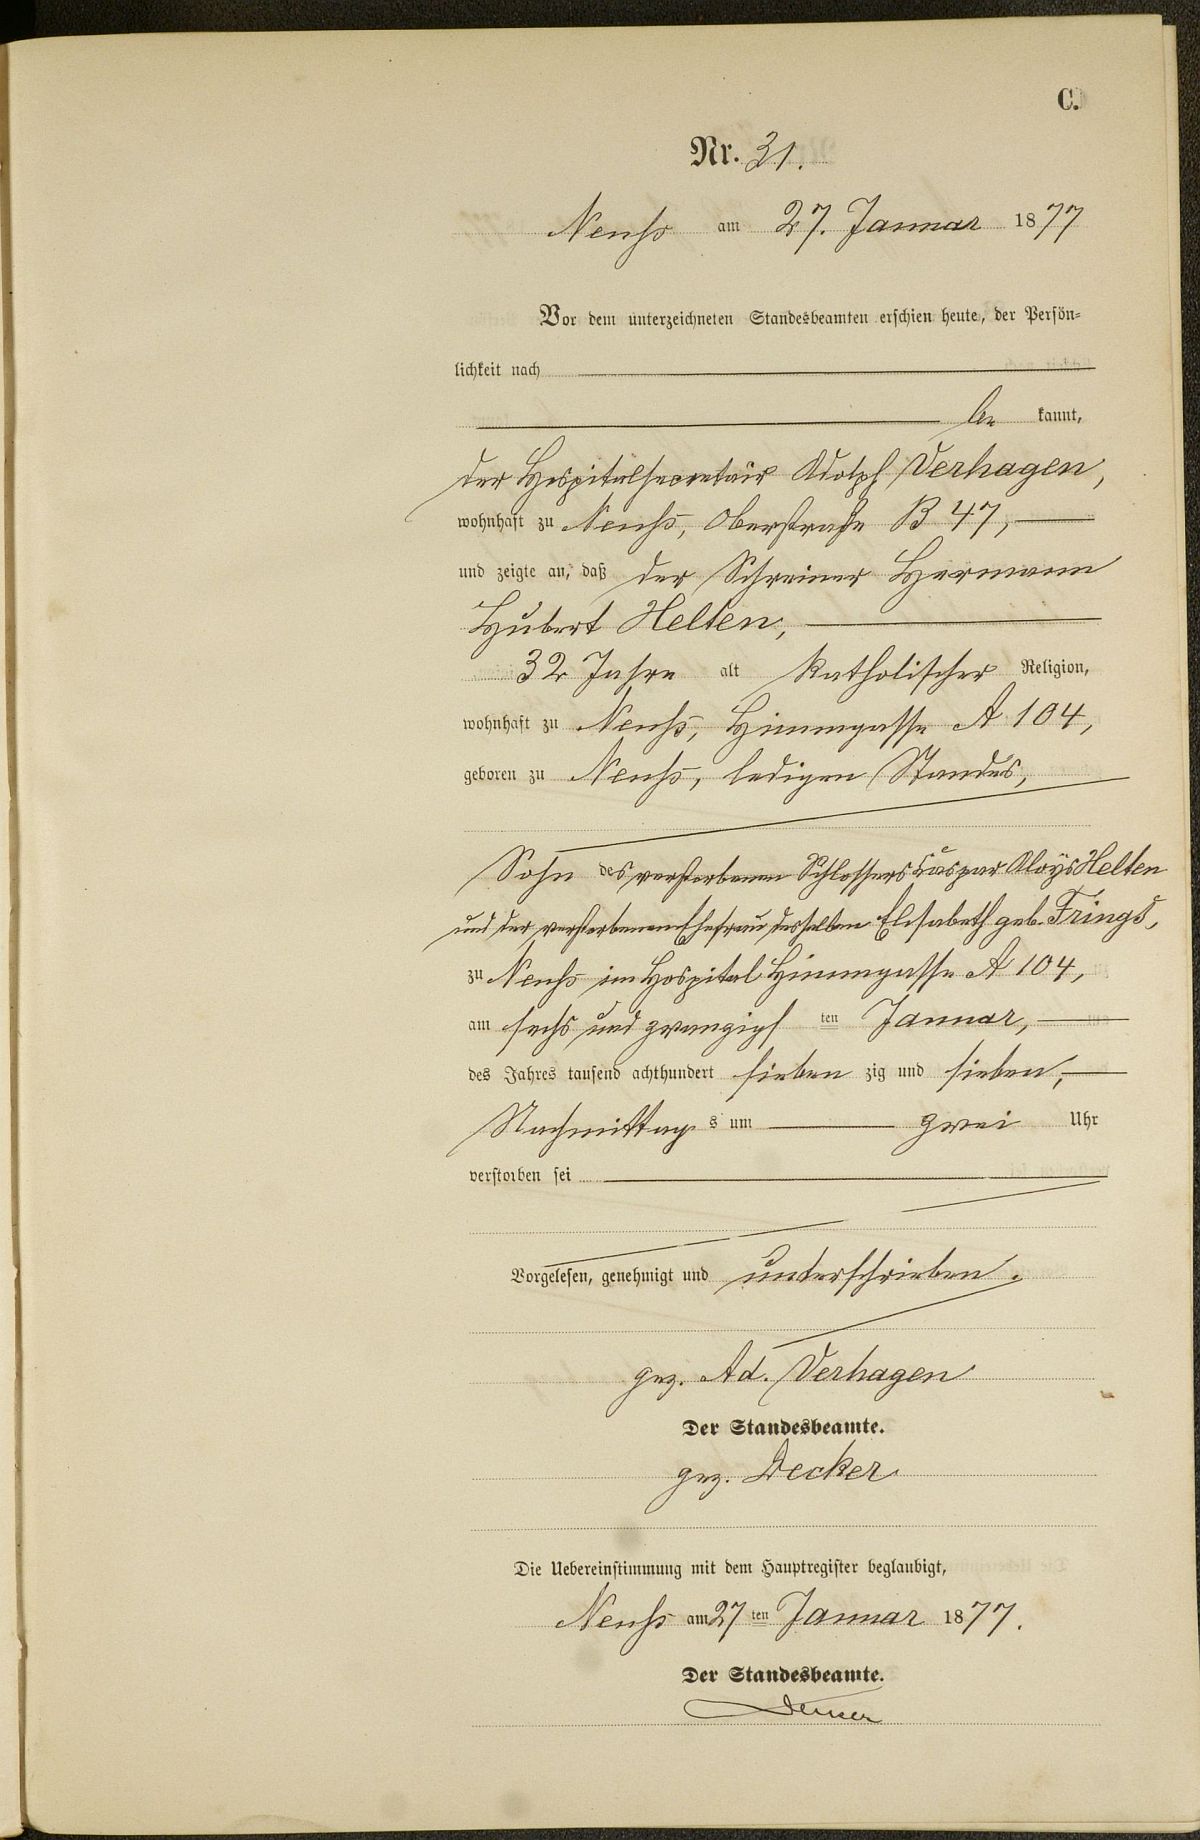 C.
Nr. 31.
Neuß am 27. Januar 1877
Vor dem unterzeichneten Standesbeamten erschien heute, der Persön-
lichkeit nach
be kannt,
der Hospitalsecretair Adolph Verhagen,
wohnhaft zu Neuß, Oberstraße B 47,
und zeigte an, daß der Schreiner Hermann
Hubert Helten,
32 Jahre alt katholischer Religion,
wohnhaft zu Neuß, Himmgasse A 104,
geboren zu Neuß, ledigen Standes,
Sohn des verstorbenen Schlossers Caspar Aloys Helten
und der verstorbenen Ehefrau desselben Elisabeth geb. Frings,
zu Neuß im Hospital Himmgasse A 104,
am sechs und zwanzigs ten Januar,
des Jahres tausend achthundert sieben zig und sieben,
Nachmittag s um zwei Uhr
verstorben sei
Vorgelesen, genehmigt und unterschrieben.
gez. Ad. Verhagen
Der Standesbeamte.
gez. Decker
Die Uebereinstimmung mit dem Hauptregister beglaubigt,
Neuß am 27 ten Januar 1877.
Der Standesbeamte.